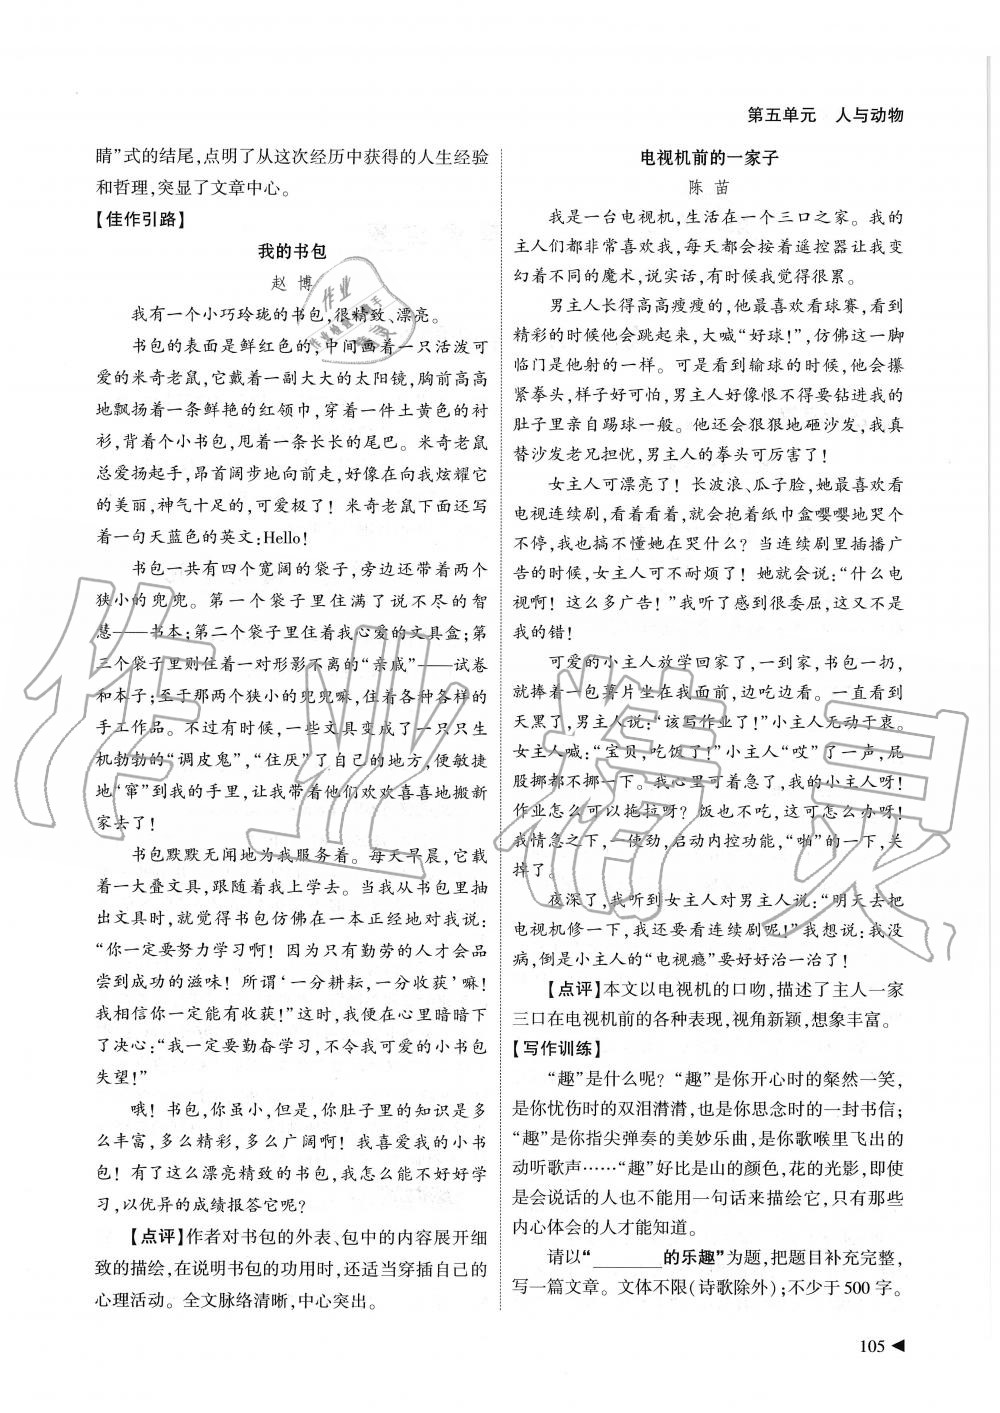 第五单元 人与动物
睛”式的结尾,点明了从这次经历中获得的人生经验
和哲理,突显了文章中心。
【佳作引路】
我的书包
赵 博
我有一个小巧玲珑的书包,很精致、漂亮。
书包的表面是鲜红色的,中间画着一只活泼可
爱的米奇老鼠,它戴着一副大大的太阳镜,胸前高高
地飘扬着一条鲜艳的红领巾,穿着一件土黄色的衬
衫,背着个小书包,甩着一条长长的尾巴。米奇老鼠
总爱扬起手,昂首阔步地向前走,好像在向我炫耀它
的美丽,神气十足的,可爱极了!米奇老鼠下面还写
着一句天蓝色的英文:Hello!
书包一共有四个宽阔的袋子,旁边还带着两个
狭小的兜兜。第一个袋子里住满了说不尽的智
慧——书本;第二个袋子里住着我心爱的文具盒;第
三个袋子里则住着一对形影不离的“亲戚”——试卷
和本子;至于那两个狭小的兜兜嘛,住着各种各样的
手工作品。不过有时候,一些文具变成了一只只生
机勃勃的“调皮鬼”,“住厌”了自己的地方,便敏捷
地‘窜”到我的手里,让我带着他们欢欢喜喜地搬新
家去了!
书包默默无闻地为我服务着。每天早晨,它载
着一大叠文具,跟随着我上学去。当我从书包里抽
出文具时,就觉得书包仿佛在一本正经地对我说:
“你一定要努力学习啊!因为只有勤劳的人才会品
尝到成功的滋味!所谓‘一分耕耘,一分收获’嘛!
我相信你一定能有收获!”这时,我便在心里暗暗下
了决心:“我一定要勤奋学习,不令我可爱的小书包
失望!”
哦!书包,你虽小,但是,你肚子里的知识是多
么丰富,多么精彩,多么广阔啊!我喜爱我的小书
包!有了这么漂亮精致的书包,我怎么能不好好学
习,以优异的成绩报答它呢?
【点评】作者对书包的外表、包中的内容展开细
致的描绘,在说明书包的功用时,还适当穿插自己的
心理活动。全文脉络清晰,中心突出。
电视机前的一家子
陈 苗
我是一台电视机,生活在一个三口之家。我的
主人们都非常喜欢我,每天都会按着遥控器让我变
幻着不同的魔术,说实话,有时候我觉得很累。
男主人长得高高瘦瘦的,他最喜欢看球赛,看到
精彩的时候他会跳起来,大喊“好球!”,仿佛这一脚
临门是他射的一样。可是看到输球的时候,他会攥
紧拳头,样子好可怕,男主人好像恨不得要钻进我的
肚子里亲自踢球一般。他还会狠狠地砸沙发,我真
替沙发老兄担忧,男主人的拳头可厉害了!
女主人可漂亮了!长波浪、瓜子脸,她最喜欢看
电视连续剧,看着看着,就会抱着纸巾盒嘤嘤地哭个
不停,我也搞不懂她在哭什么?当连续剧里插播广
告的时候,女主人可不耐烦了!她就会说:“什么电
视啊!这么多广告!”我听了感到很委屈,这又不是
我的错!
可爱的小主人放学回家了,一到家,书包一扔,
就捧着一包薯片坐在我面前,边吃边看。一直看到
天黑了,男主人说:“该写作业了!”小主人无动于衷。
女主人喊:“宝贝,吃饭了!”小主人“哎”了一声,屁
股挪都不挪一下。我心里可着急了,我的小主人呀!
作业怎么可以拖拉呀?饭也不吃,这可怎么办呀!
我情急之下,一使劲,启动内控功能,“啪”的一下,关
掉了。
夜深了,我听到女主人对男主人说:“明天去把
电视机修一下,我还要看连续剧呢!”我想说:我没
病,倒是小主人的“电视瘾”要好好治一治了!
【点评】本文以电视机的口吻,描述了主人一家
三口在电视机前的各种表现,视角新颖,想象丰富。
【写作训练】
“趣”是什么呢?“趣”是你开心时的粲然一笑,
是你忧伤时的双泪潸潸,也是你思念时的一封书信;
“趣”是你指尖弹奏的美妙乐曲,是你歌喉里飞出的
动听歌声……“趣”好比是山的颜色,花的光影,即使
是会说话的人也不能用一句话来描绘它,只有那些
内心体会的人才能知道。
请以“________的乐趣”为题,把题目补充完整,
写一篇文章。文体不限(诗歌除外);不少于500字。
105
作业精灵